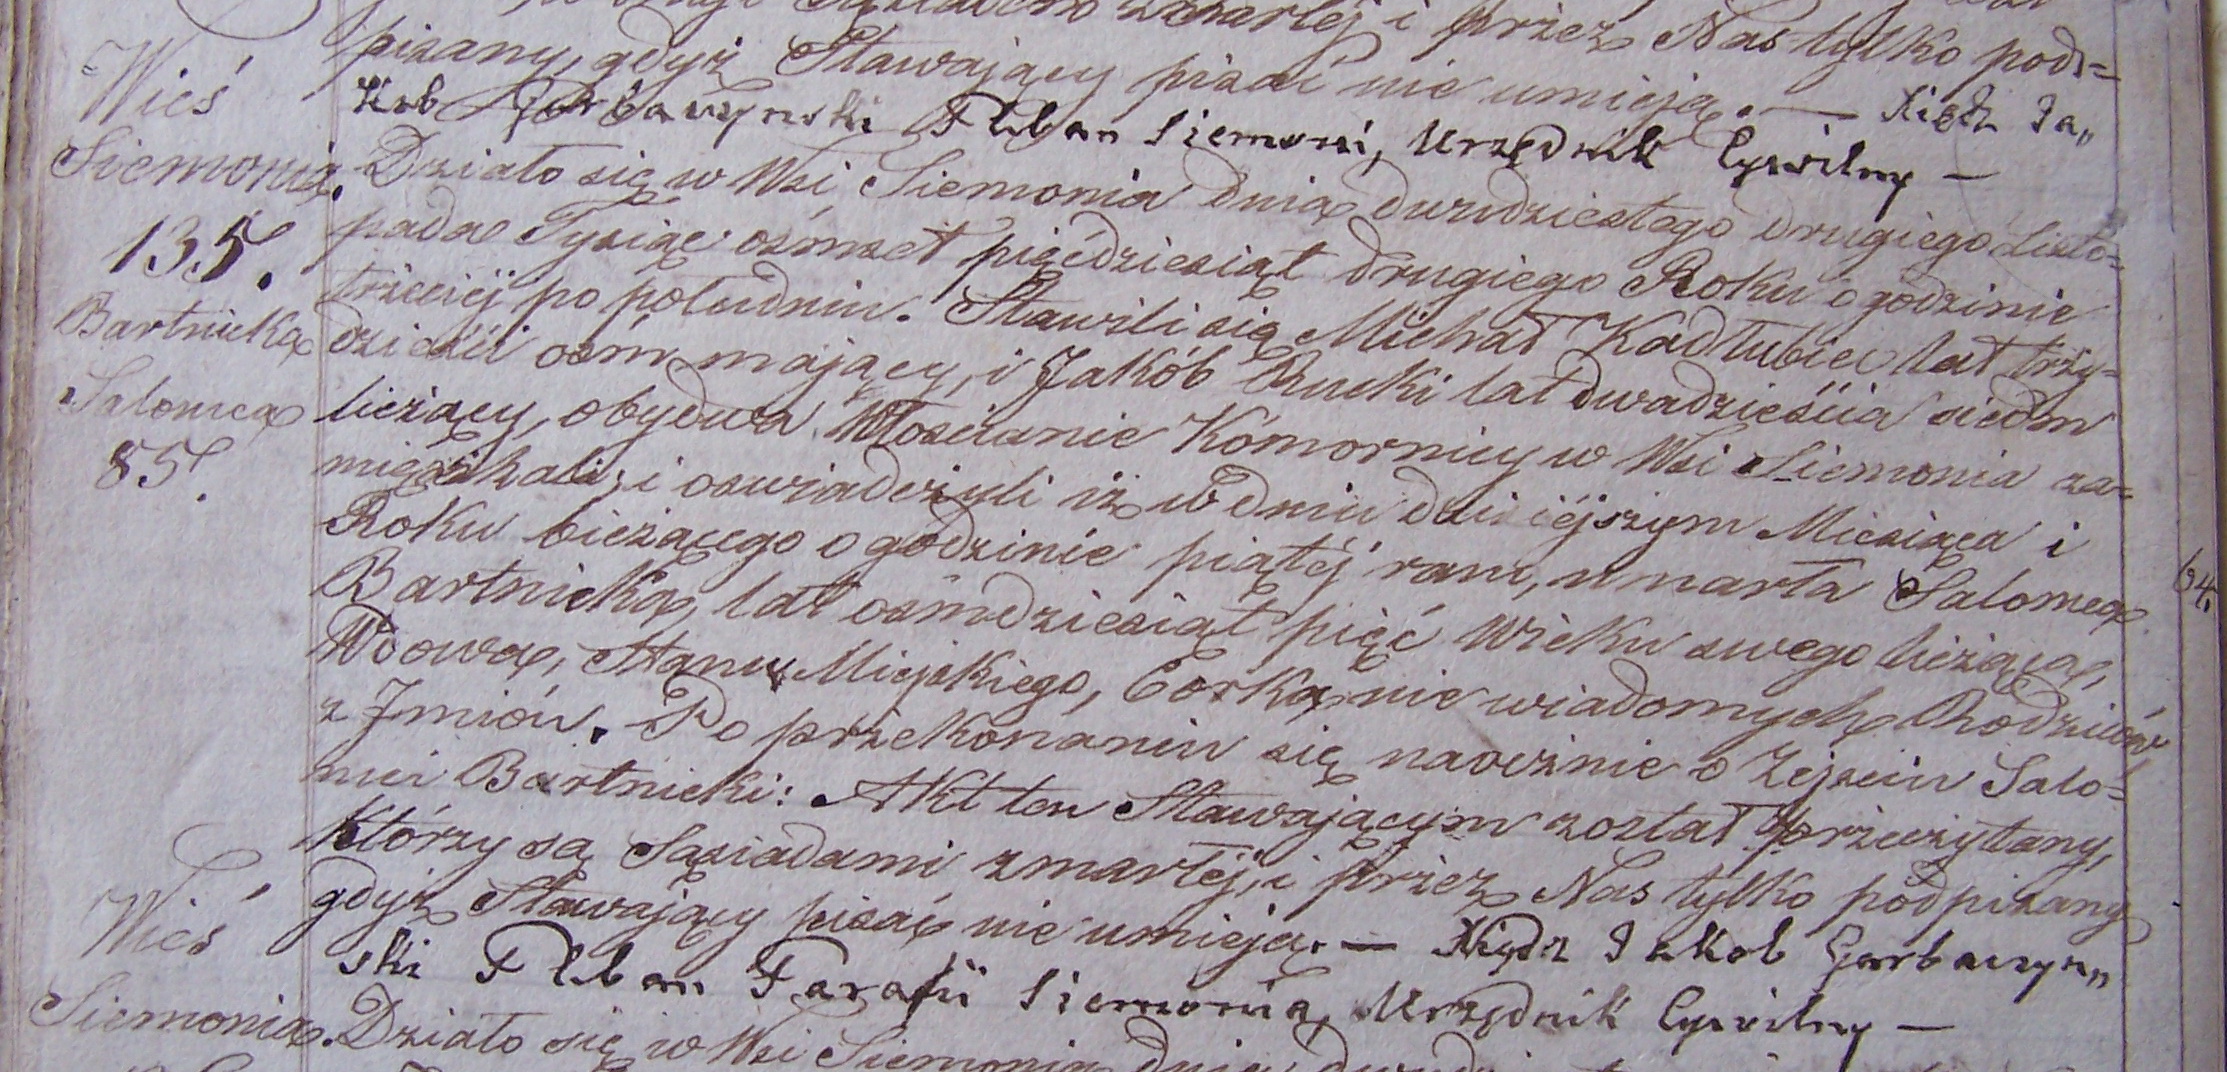 zmarłej i przez Nas tylko pod=
pisany, gdyż Stawający pisać nie umieją. — Xiądz Ja„
kob Gorbaczynski Pleban Siemoni, Urzędnik Cywilny —
Wieś
Siemonia.
135.
Bartnicka
Salomea
85.
Działo się w Wsi Siemonia dnia dwudziestego drugiego Listo=
pada Tysiąc ośmset pięćdziesiąt drugiego Roku o godzinie
trzeciéj po południu. Stawili się Michał Kadłubiec lat trzy=
dzieści ośm mający, i Jakób Rucki lat dwadzieścia siedm
liczący, obydwa Włościanie Komornicy w Wsi Siemonia za=
mięszkali; i oswiadczyli iż w dniu dzisiéjszym Miesiąca i
Roku bieżącego o godzinie piątéj rano, umarła Salomea
Bartnicka, lat ośmdziesiąt pięć wieku swego licząca,
Wdowa, Stanu Miejskiego, Corka nie wiadomych Rodziców
z Imion. Po przekonaniu się naocznie o Zejsciu Salo=
mei Bartnicki: Akt ten Stawającym został przeczytany,
którzy są Sąsiadami zmarłéj, i przez Nas tylko podpisany
gdyż Stawający pisać nie umieją. — Xiądz Jakob Gorbaczyn„
ski Pleban Parafii Siemonia, Urzędnik Cywilny —
64.
Wieś
Siemonia.
Działo się w Wsi Siemonia dnia